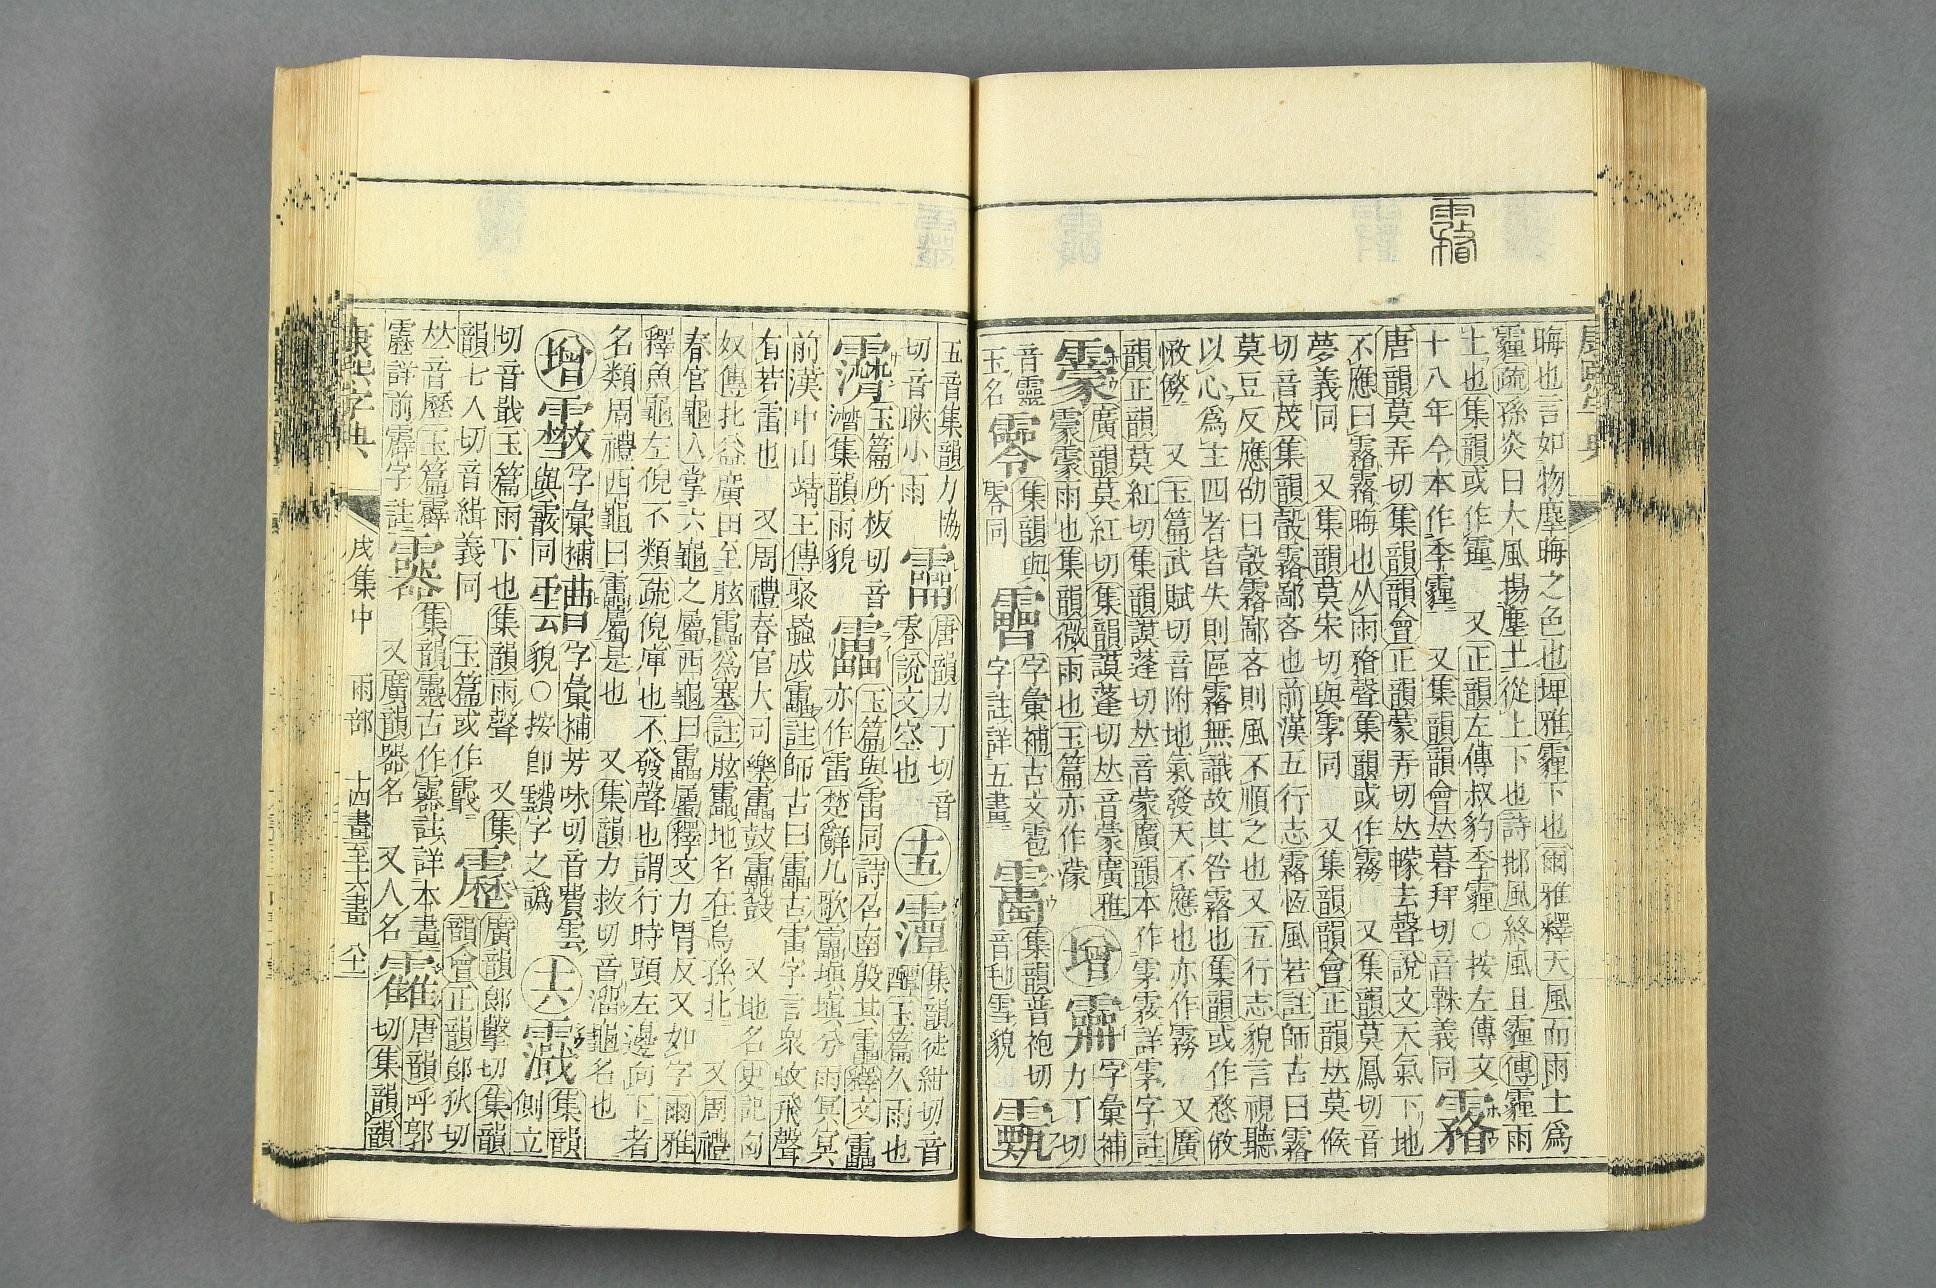 康熙字典
霿
晦也言如物塵晦之色也埤雅霾下也爾雅釋天風而雨土爲
霾疏孫炎曰大風揚塵土從上下也詩邶風終風且霾傳霾雨
土也集韻或作 又正韻左傳叔豹季霾○按左傳文
十八年今本作季霾 又集韻韻會𠀤暮拜切音韎義同 霿
唐韻莫弄切集韻韻會正韻蒙弄切𠀤幪去聲說文天氣下地
不應曰霿霿晦也从雨瞀聲集韻或作霧 又集韻莫鳳切音
夢義同 又集韻莫宋切與雺同 又集韻韻會正韻𠀤莫候
切音茂集韻瞉霿鄙吝也前漢五行志霿恆風若註師古曰霿
莫豆反應劭曰瞉霿鄙吝則風不順之也又五行志貌言視聽
以心爲主四者皆失則區霿無識故其咎霿也集韻或作愗
又玉篇武賦切音附地氣發天不應也亦作霧 又廣
韻正韻莫紅切集韻謨蓬切𠀤音蒙廣韻本作雺霚詳雺字註
霥 廣韻莫紅切集韻謨蓬切𠀤音蒙廣雅
霥霥雨也集韻微雨也玉篇亦作濛 增 字彙補
力丁切
音靈
玉名 集韻與
零同 字彙補古文雹
字註詳五畫 集韻普袍切
音 雪貌
五音集韻力協
切音 小雨 唐韻力丁切音
霝 說文空也 十五 集韻徒紺切音
玉篇久雨也
玉篇所板切音
潸集韻雨貌 靁 玉篇與雷同詩召南殷其靁釋文靁
亦作雷楚辭九歌靁塡塡兮雨冥冥
前漢中山靖王傳聚蟁成靁註師古曰靁古雷字言衆蚊飛聲
有若雷也 又周禮春官大司樂靁鼓靁鼗 又地名史記匈
奴傳北益廣田至胘靁爲塞註胘靁地名在烏孫北 又周禮
春官龜人掌六龜之屬西龜曰靁屬釋文力胃反又如字爾雅
釋魚龜左倪不類疏倪庳也不發聲也謂行時頭左邊向下者
名類周禮西龜曰靁屬是也 又集韻力救切音溜龜名也
增 字彙補
與霰同 字彙補芳味切音費雲
貌○按卽靅字之譌 十六 集韻
側立
切音戢玉篇雨下也集韻雨聲 又集
韻七入切音緝義同 玉篇或作 靂 廣韻郎擊切集韻
韻會正韻郎狄切
𠀤音歷玉篇霹
靂詳前霹字註 集韻靈古作 註詳本畫
又廣韻器名 又人名 靃 唐韻呼郭
切集韻韻
康熙字典 戌集中 雨部 十四畫至十六畫